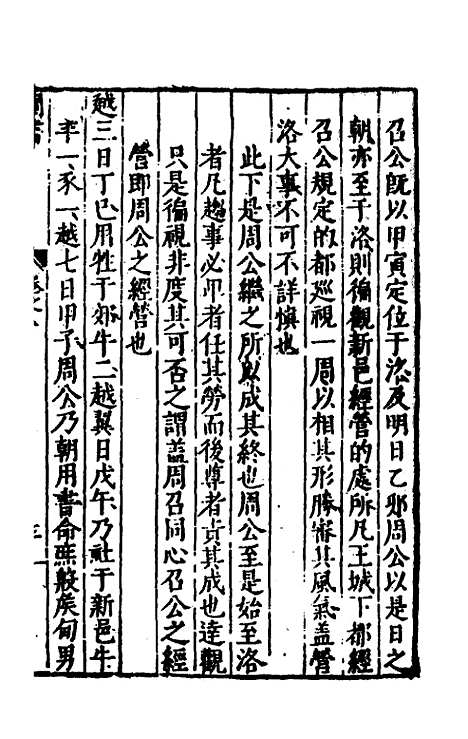 召公既以甲寅定位于洛及明日乙卯周公以是日之
朝亦至于洛則徧觀新邑經營的處所凡王城下都經
召公規定的都巡視一周以相其形勝審其風氣蓋營
洛大事不可不詳慎也
此下是周公繼之所以成其終也周公至是始至洛
者凡趨事必卑者任其勞而後尊者責其成也達觀
只是徧視非度其可否之謂蓋周召同心召公之經
營即周公之經營也
越三日丁巳用牲于郊牛二越翼日戊午乃社于新邑牛
羊一豕一越七日甲子周公乃朝用書命庶殷侯甸男